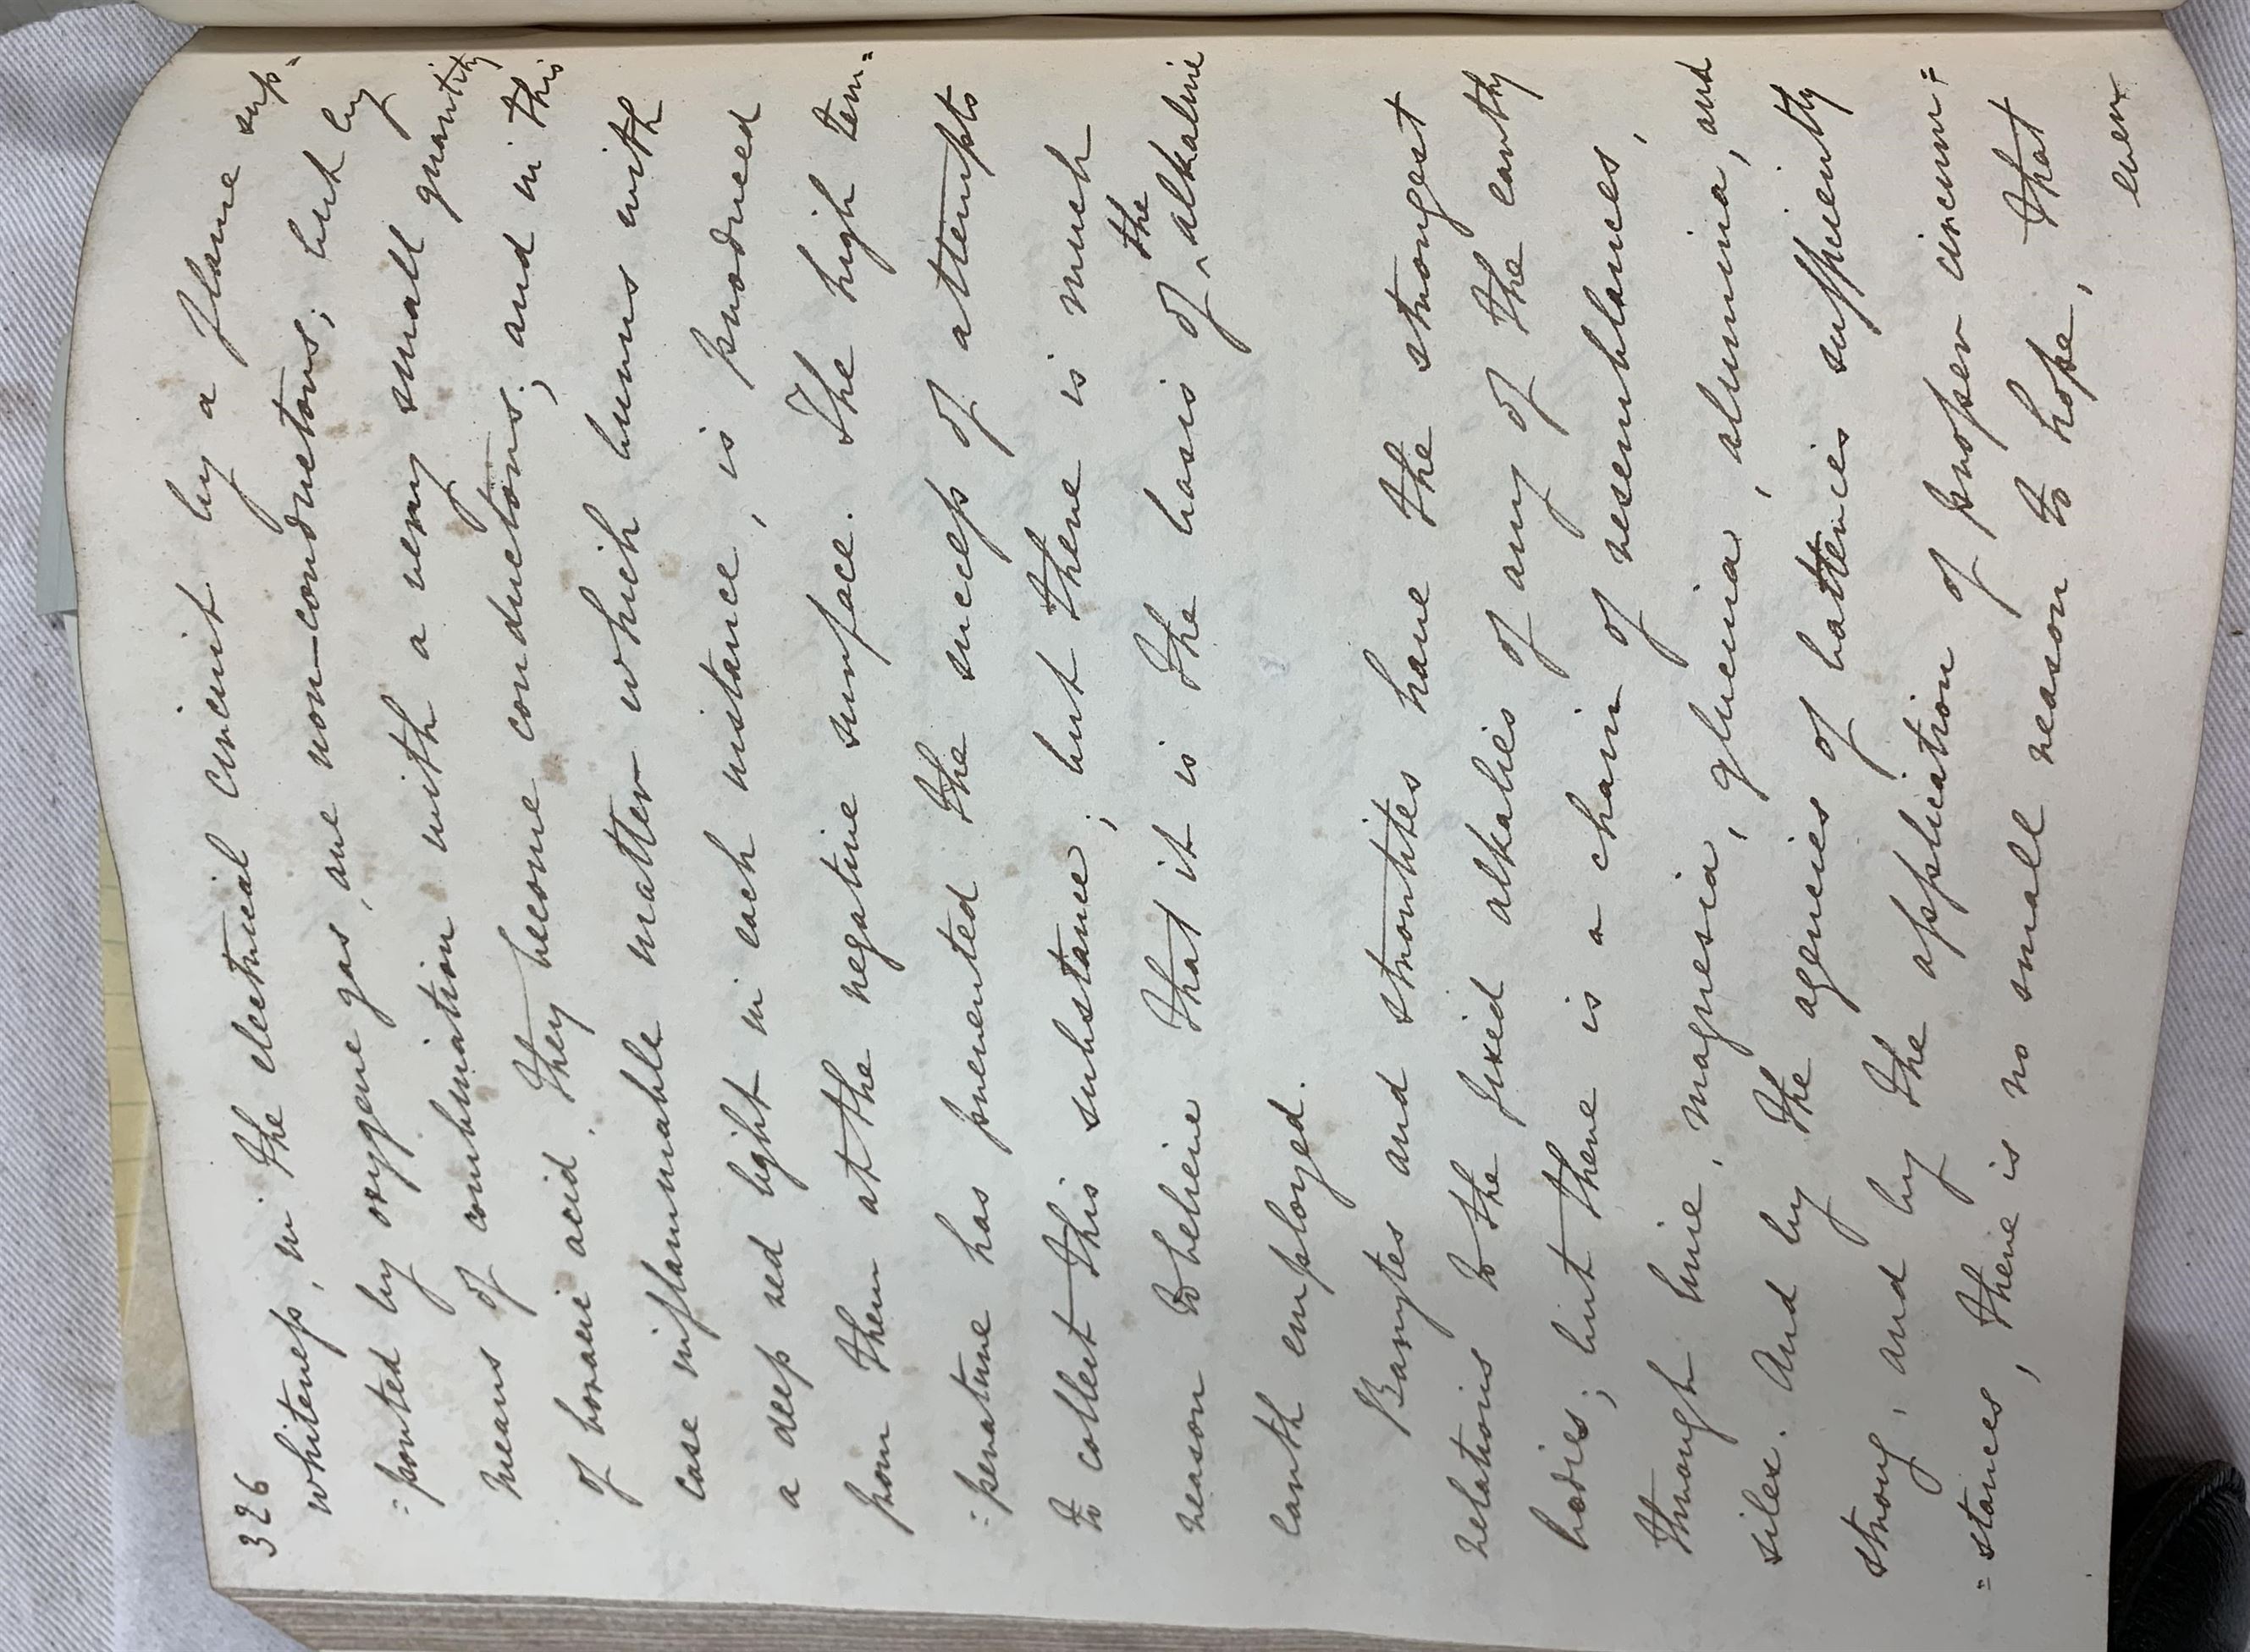 326
whiteness, in the electrical circuit by a flame sup=
=ported by oxygene gas, are non-conductors; but by
means of combination with a very small quantity
of boracic acid, they become conductors; and in this
case inflammable matter which burns with
a deep red light in each instance, is produced
from them at the negative surface. The high tem=
=perature has prevented the success of attempts
to collect this substance; but there is much
reason to believe that it is the basis of ^the alkaline
earth employed.
Barytes and strontites have the strongest
relations to the fixed alkalies of any of the earthy
bodies; but there is a chain of resemblances,
through lime, magnesia, glucina, alumina, and
silex. And by the agencies of batteries sufficiently
strong, and by the application of proper circum=
=stances, there is no small reason to hope, that
even